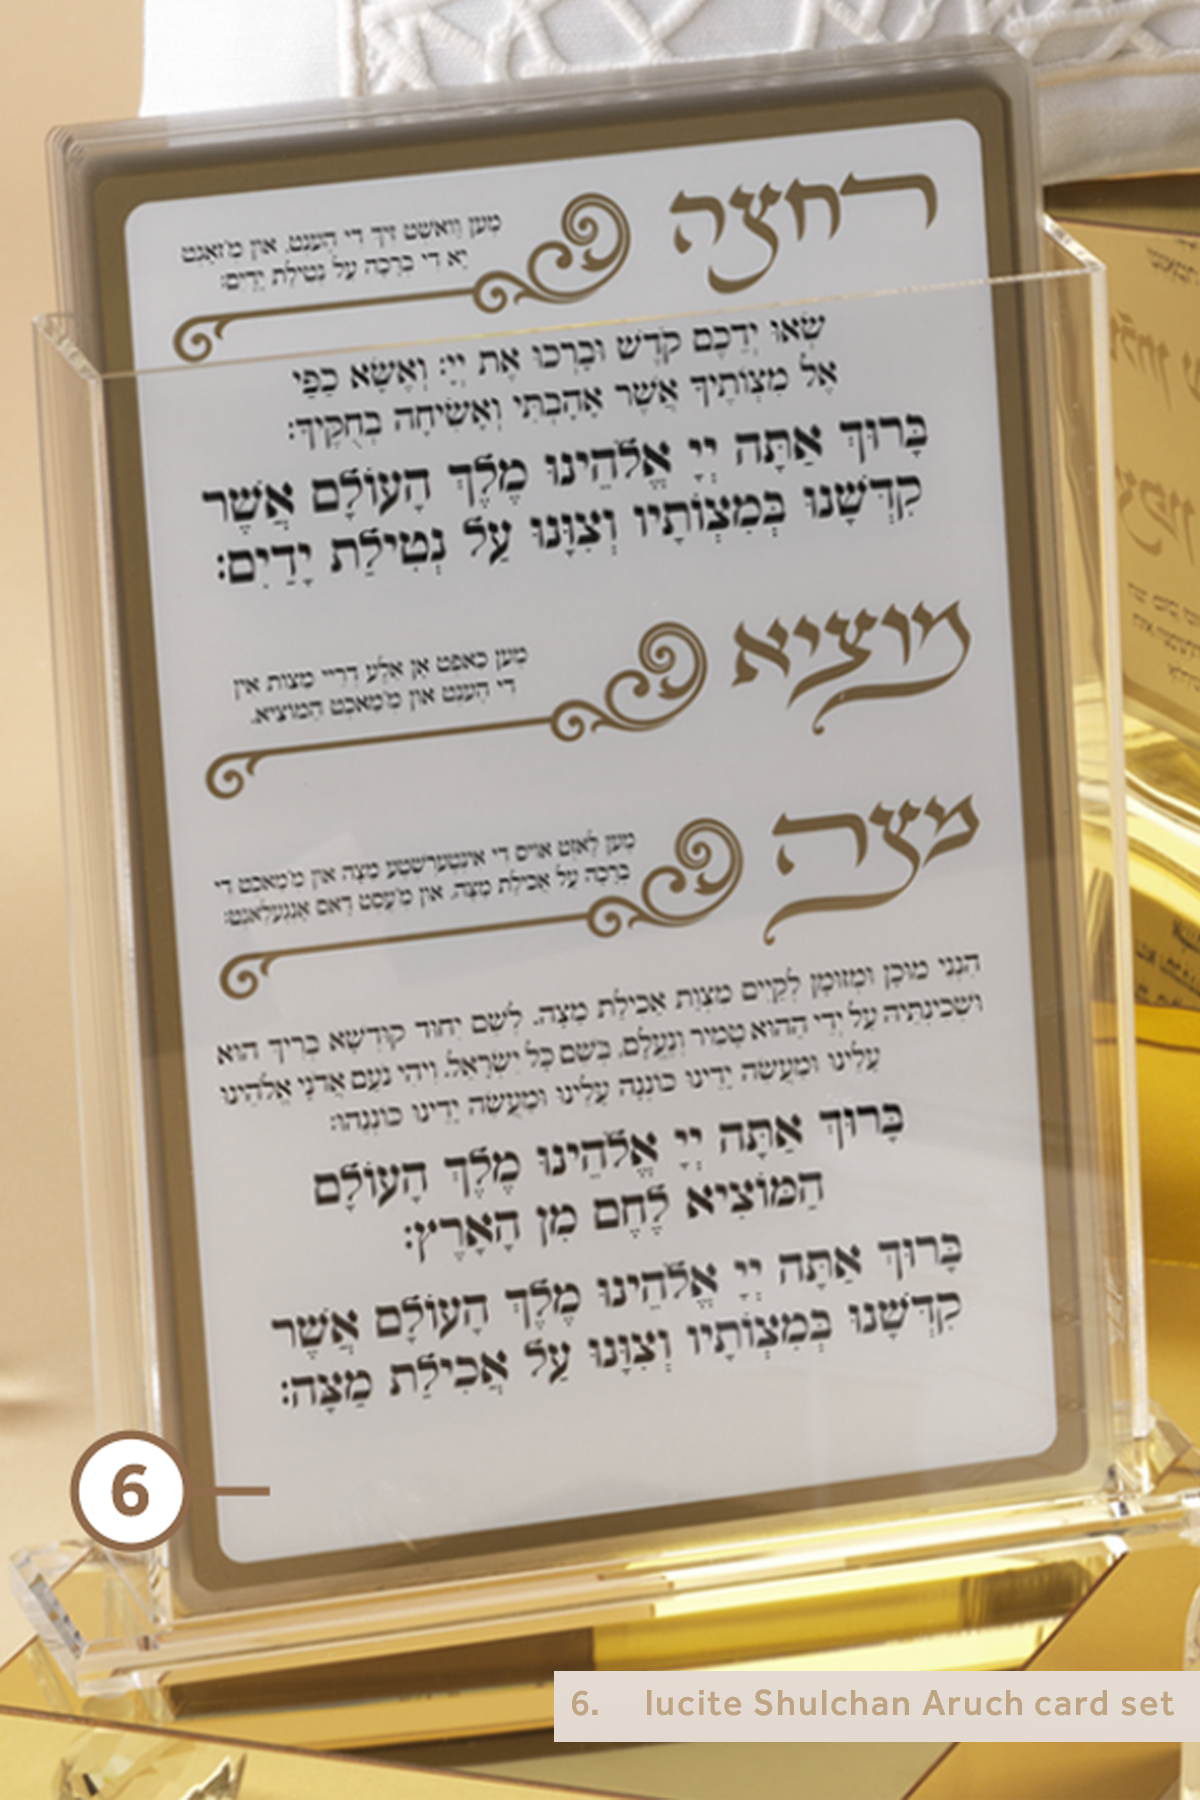 רחצה
מען וואשט זיך די הענט, און מ'זאגט
יא די ברכה על נטילת ידים:
שְׂאוּ יְדֵכֶם קֹדֶשׁ וּבָרְכוּ אֶת יְיָ: וְאֶשָּׂא כַפַּי
אֶל מִצְוֹתֶיךָ אֲשֶׁר אָהָבְתִּי וְאָשִׂיחָה בְחֻקֶּיךָ:
בָּרוּךְ אַתָּה יְיָ אֱלֹהֵינוּ מֶלֶךְ הָעוֹלָם אֲשֶׁר
קִדְּשָׁנוּ בְּמִצְוֹתָיו וְצִוָּנוּ עַל נְטִילַת יָדַיִם:
מוציא
מען כאפט אן אלע דריי מצות אין
די הענט און מ'מאכט המוציא.
מצה
מען לאזט אויס די אינטערשטע מצה און מ'מאכט די
ברכה על אכילת מצה, און מ'עסט דאס אנגעלאגט:
הנני מוכן ומזומן לקיים מצות אכילת מצה. לשם יחוד קודשא בריך הוא
ושכינתיה על ידי ההוא טמיר ונעלם, בשם כל ישראל. ויהי נעם אדני אלהינו
עלינו ומעשה ידינו כוננה עלינו ומעשה ידינו כוננהו:
בָּרוּךְ אַתָּה יְיָ אֱלֹהֵינוּ מֶלֶךְ הָעוֹלָם
הַמּוֹצִיא לֶחֶם מִן הָאָרֶץ:
בָּרוּךְ אַתָּה יְיָ אֱלֹהֵינוּ מֶלֶךְ הָעוֹלָם אֲשֶׁר
קִדְּשָׁנוּ בְּמִצְוֹתָיו וְצִוָּנוּ עַל אֲכִילַת מַצָּה:
6
6. lucite Shulchan Aruch card set